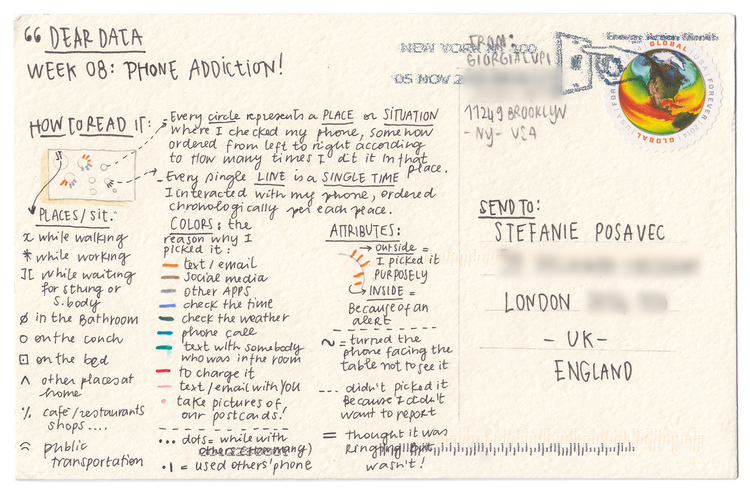 “ DEAR DATA
WEEK 08: PHONE ADDICTION!
HOW TO READ IT:
- Every circle represents a PLACE or SITUATION
where I checked my phone, somehow
ordered from left to right according
to HOW many times I did it in that
place.
- Every single LINE is a SINGLE TIME
I interacted with my phone, ordered
chronologically per each peace.
PLACES/SIT.:
x while walking
* while working
][ while waiting
for sthung or
s.body
ø in the Bathroom
o on the couch
⊡ on the bed
^ other places at
home
٪ cafe/restaurants
shops....
public
transportation
COLORS: the
reason why I
picked it:
text/email
social media
other APPS
check the time
check the weather
phone call
text with somebody
who was in the room
to charge it
text/email with YOU
take pictures of
our postcards!
... dots = while with
others
•| = used others' phone
ATTRIBUTES:
→ outside =
I picked it
PURPOSELY
→ INSIDE =
Because of an
alert
~ = turned the
phone facing the
table not to see it
--- didn't picked it
Because I didn't
want to report
= thought it was
ringing But
wasn't!
FROM:
GIORGIA LUPI
11249 BROOKLYN
- NY - USA
NEW YORK NY 100
05 NOV 2
GLOBAL
USA
FOREVER
SEND TO:
STEFANIE POSAVEC
LONDON
- UK -
ENGLAND